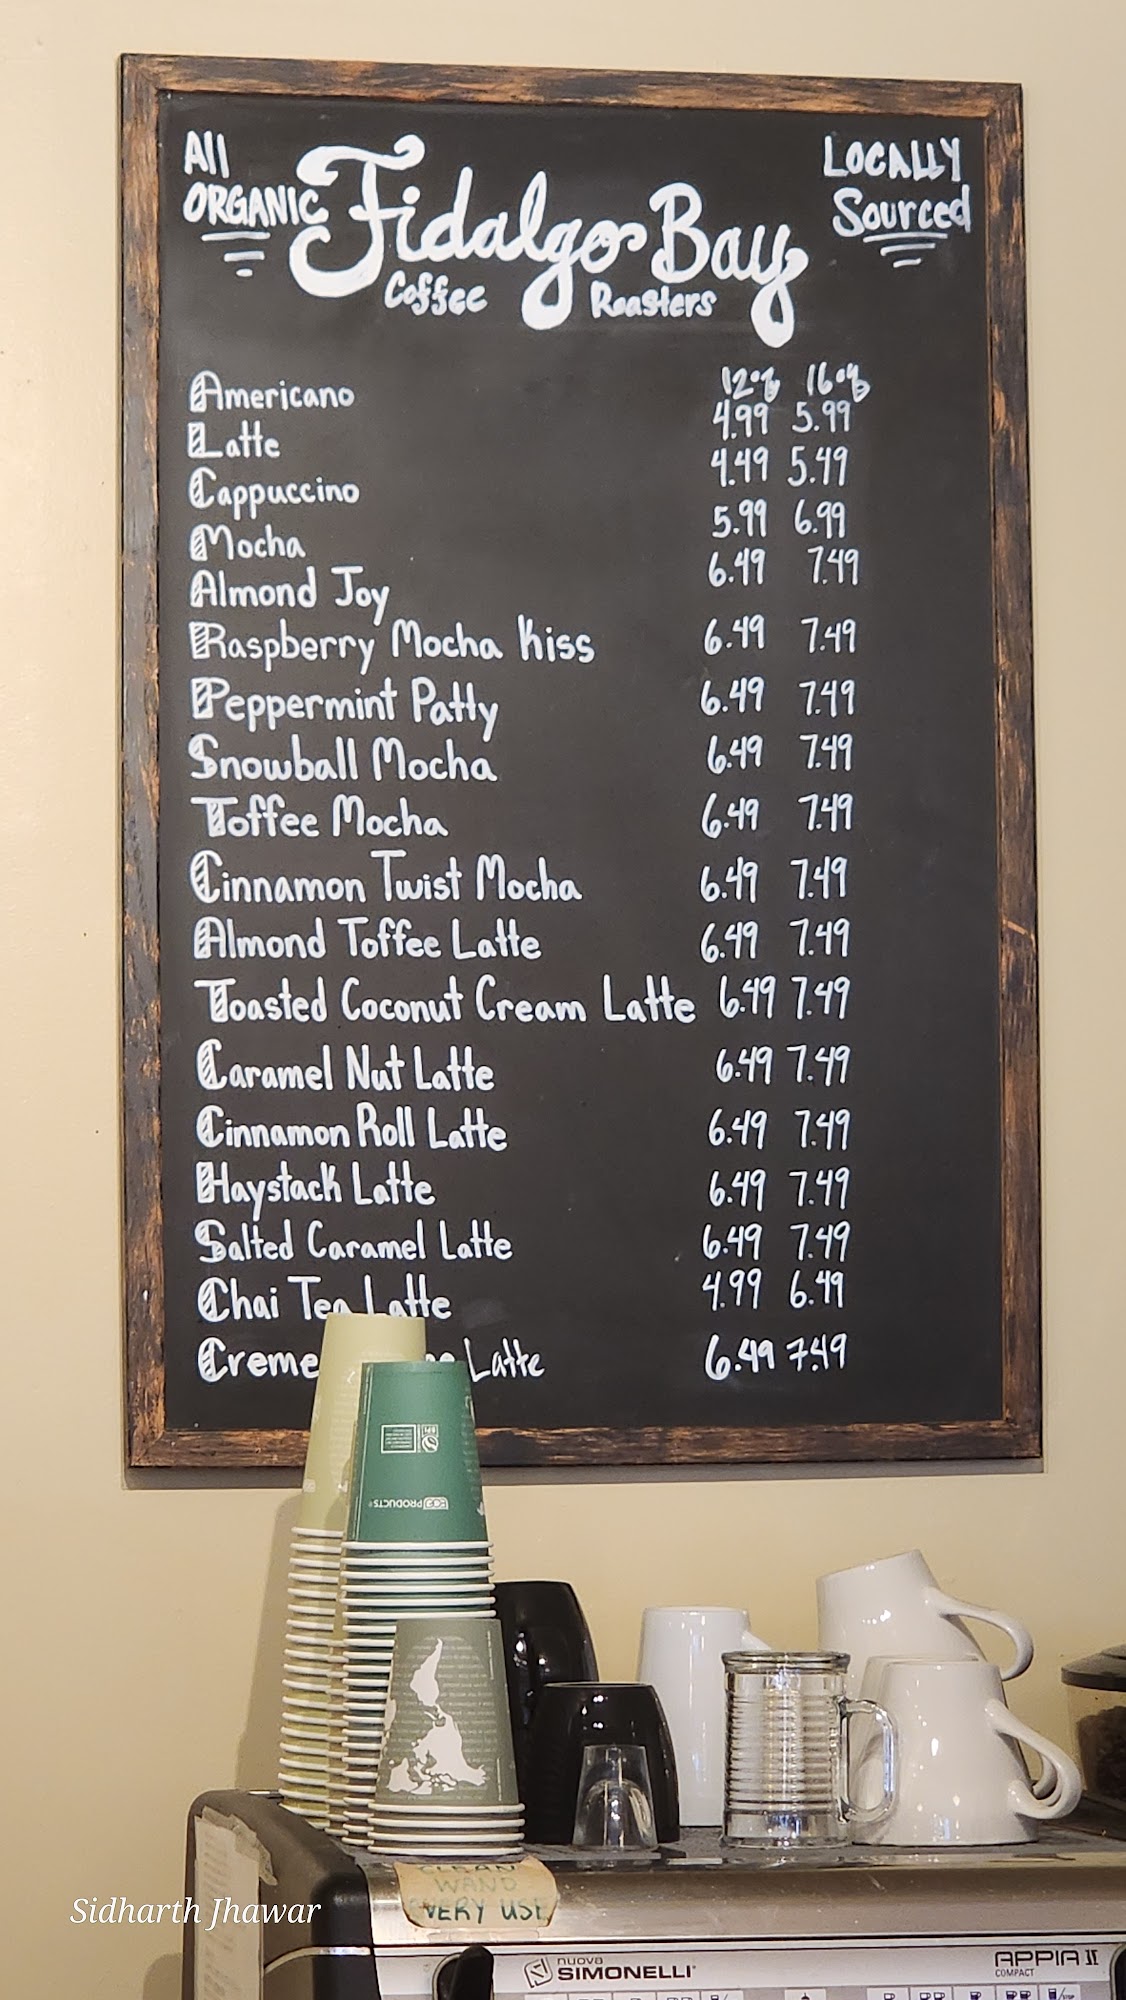 All ORGANIC
Fidalgo Bay
Coffee Roasters
LOCALLY Sourced
Americano 12oz 16oz
Latte 4.99 5.99
Cappuccino 4.49 5.49
Mocha 5.99 6.99
Almond Joy 6.49 7.49
Raspberry Mocha Kiss 6.49 7.49
Peppermint Patty 6.49 7.49
Snowball Mocha 6.49 7.49
Toffee Mocha 6.49 7.49
Cinnamon Twist Mocha 6.49 7.49
Almond Toffee Latte 6.49 7.49
Toasted Coconut Cream Latte 6.49 7.49
Caramel Nut Latte 6.49 7.49
Cinnamon Roll Latte 6.49 7.49
Haystack Latte 6.49 7.49
Salted Caramel Latte 6.49 7.49
Chai Tea Latte 4.99 6.49
Creme Latte 6.49 7.49
ECO PRODUCTS
CLEAN
WAND
EVERY USE
Sidharth Jhawar
nuova
SIMONELLI
APPIA II
COMPACT